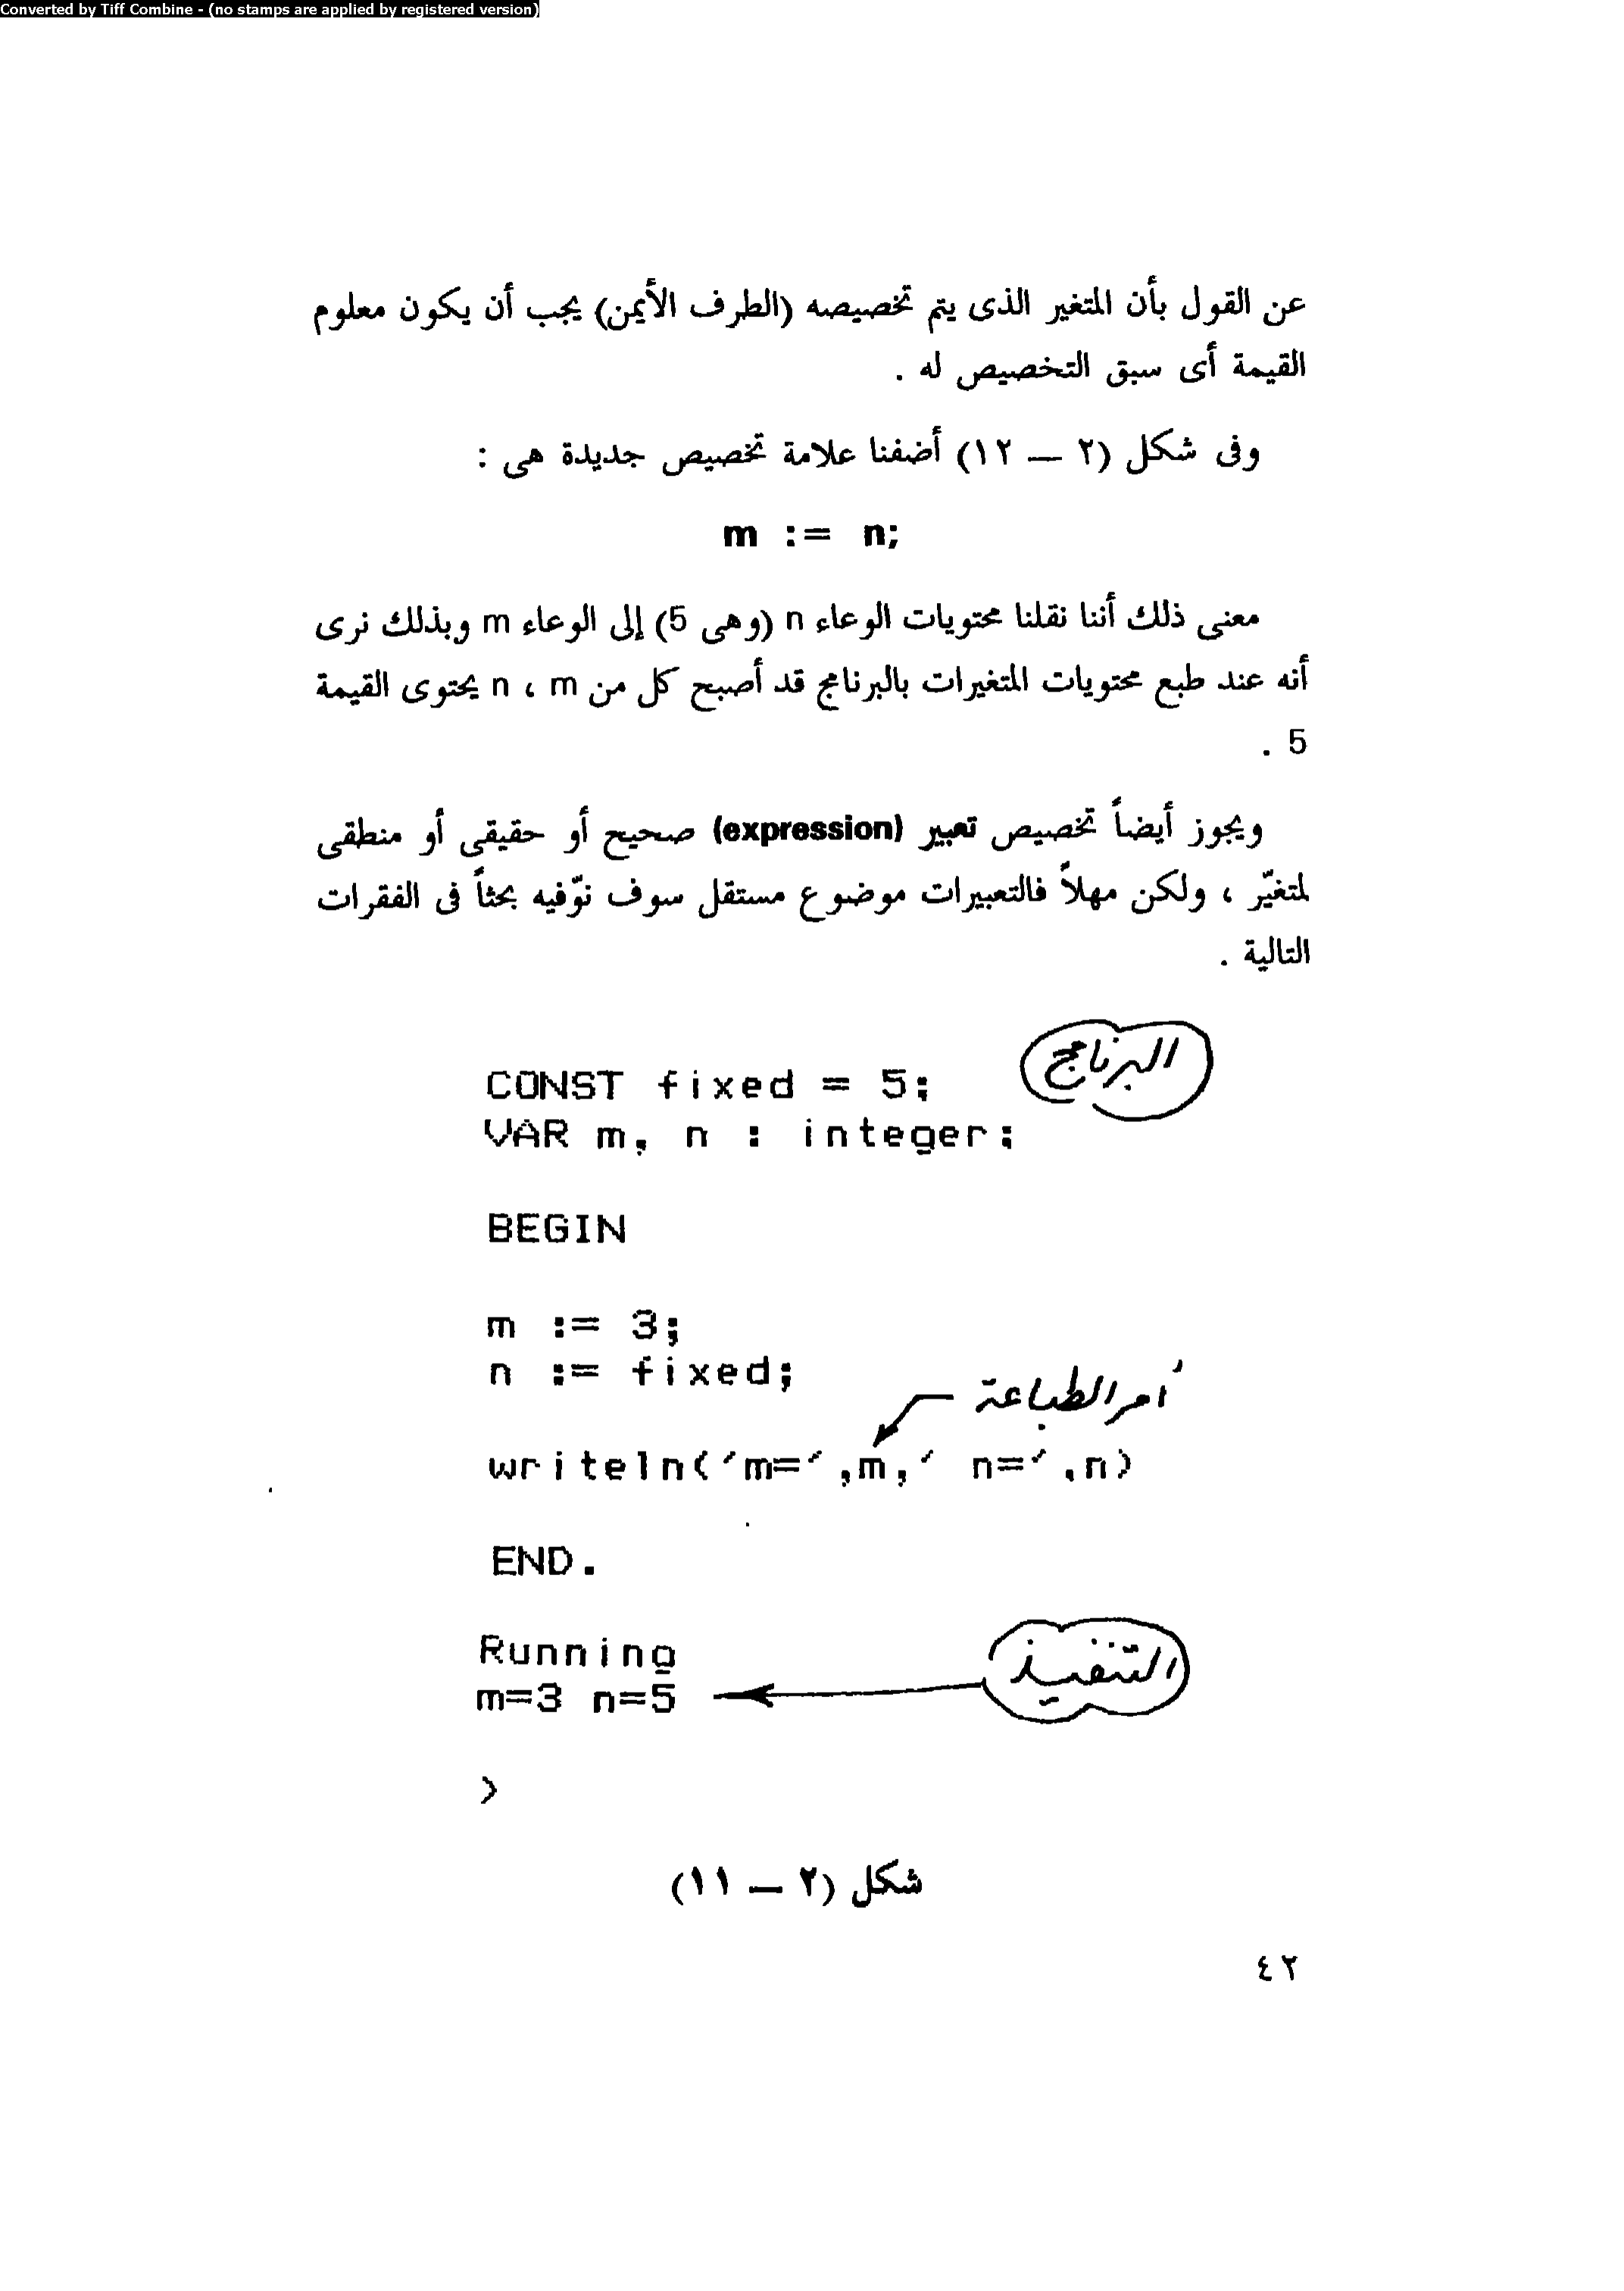 Converted by Tiff Combine - (no stamps are applied by registered version)
عن القول بأن المتغير الذى يتم تخصيصه (الطرف الأيمن) يجب أن يكون معلوم
القيمة أى سبق التخصيص له .
وفى شكل (٢ — ١٢) أضفنا علامة تخصيص جديدة هى :
m := n;
معنى ذلك أننا نقلنا محتويات الوعاء n (وهى 5) إلى الوعاء m وبذلك نرى
أنه عند طبع محتويات المتغيرات بالبرنامج قد أصبح كل من n ، m يحتوى القيمة
5 .
ويجوز أيضاً تخصيص تعبير (expression) صحيح أو حقيقى أو منطقى
لمتغيّر ، ولكن مهلاً فالتعبيرات موضوع مستقل سوف نوّفيه بحثاً فى الفقرات
التالية .
البرنامج
CONST fixed = 5;
VAR m, n : integer;
BEGIN
m := 3;
n := fixed;
أمر الطباعة
writeln('m=',m,' n=',n)
END.
Running
التنفيذ
m=3 n=5
>
شكل (٢ — ١١)
٤٢